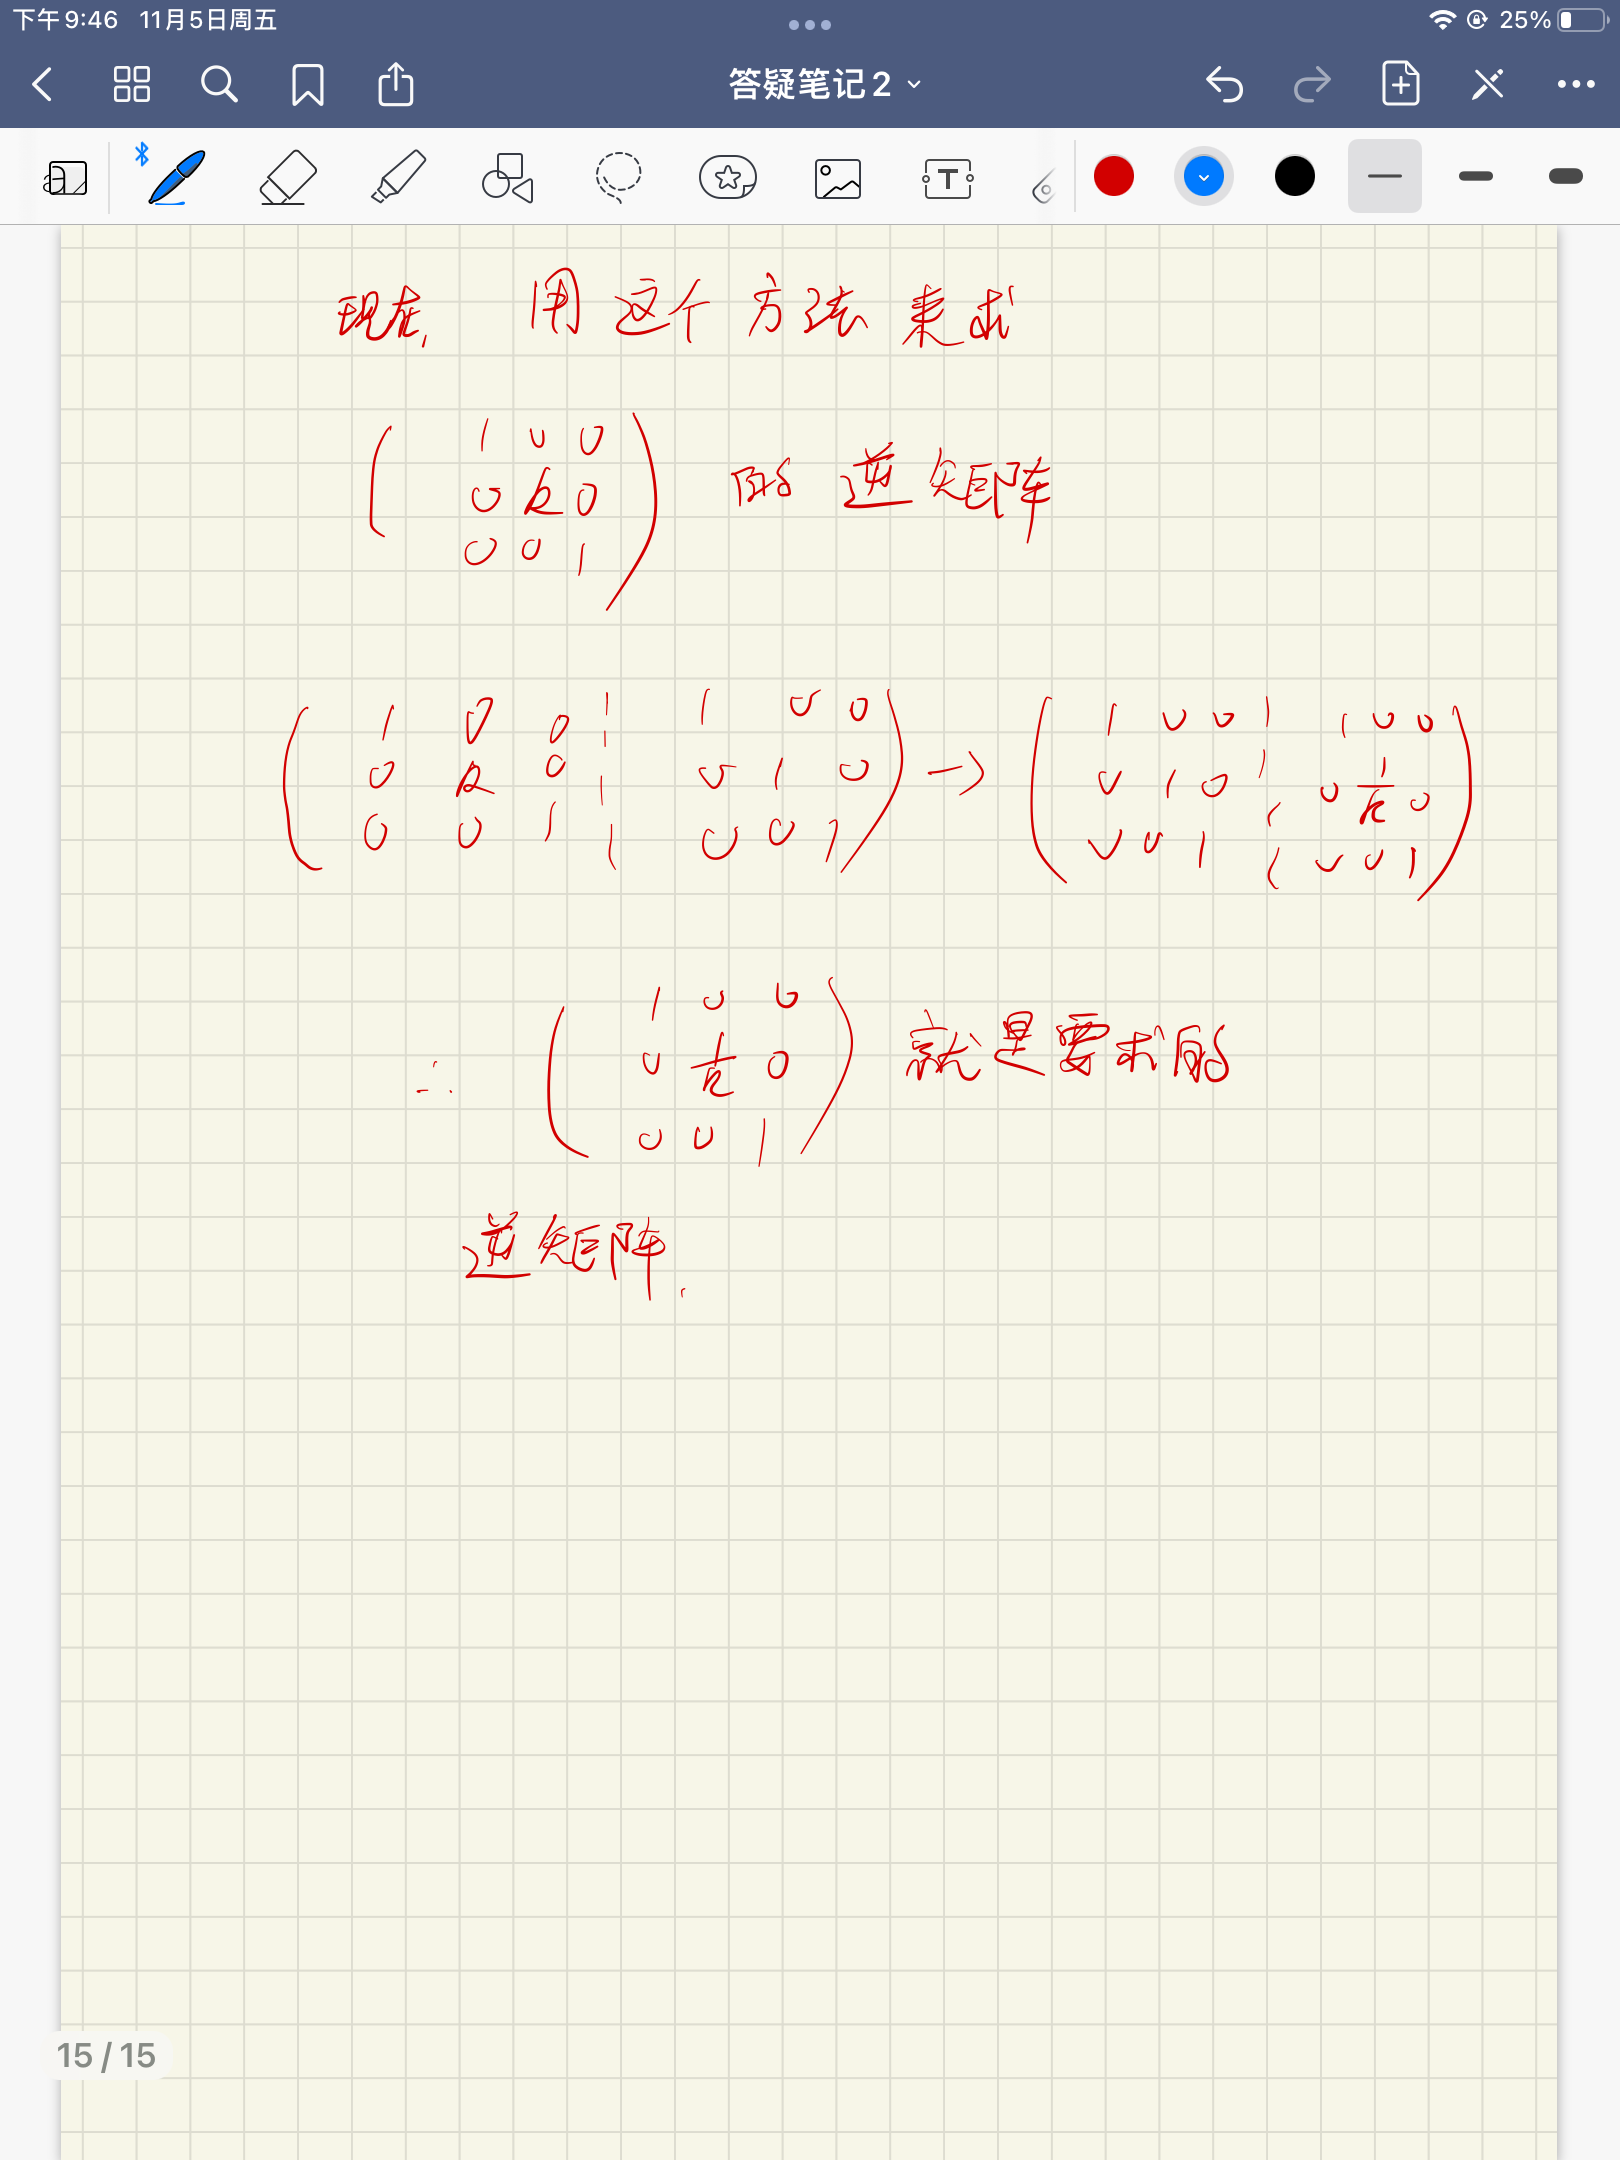 下午9:46 11月5日周五
25%
答疑笔记2
现在, 用这个方法来求
( 1 0 0
0 k 0 ) 的逆矩阵
0 0 1
( 1 0 0 | 1 0 0 ) → ( 1 0 0 | 1 0 0 )
0 k 0 | 0 1 0 0 1 0 | 0 1/k 0
0 0 1 | 0 0 1 0 0 1 | 0 0 1
( 1 0 0
∴ 0 1/k 0 ) 就是要求的
0 0 1
逆矩阵.
15 / 15